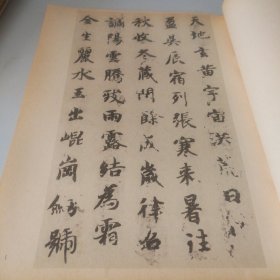 天地玄黄宇宙洪荒日月
盈昃辰宿列張寒来暑往
秋收冬藏閏餘成歲律召
調陽雲騰致雨露結為霜
金生麗水玉出崐崗劍號